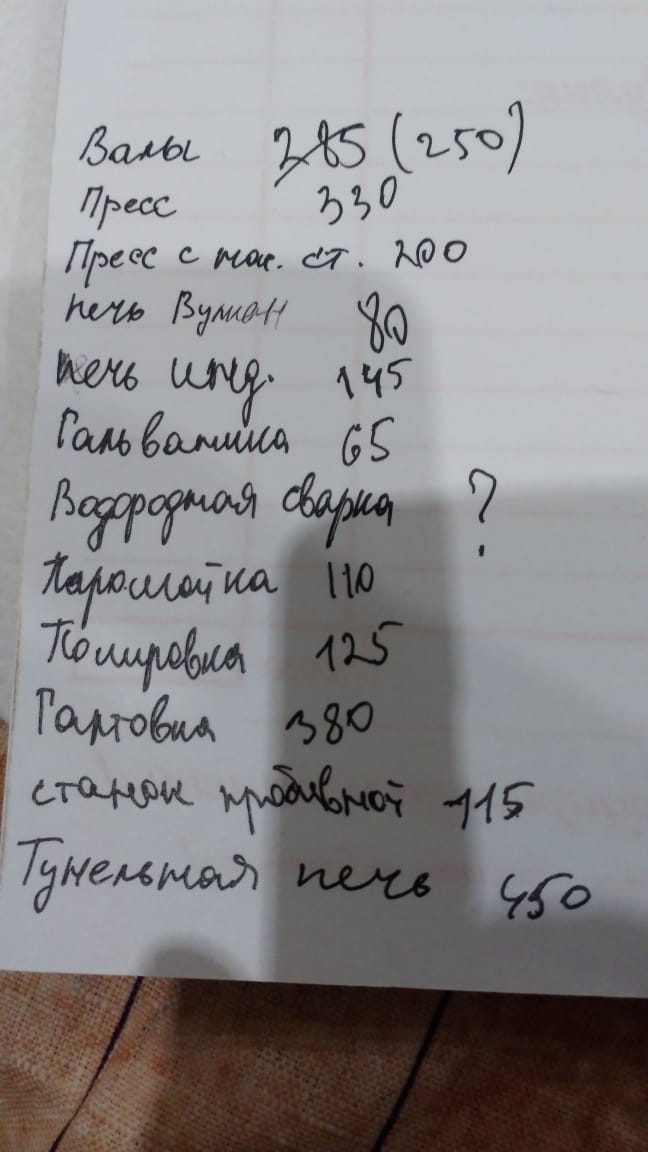 Валы 285 (250)
Пресс 330
Пресс с нак. ст. 200
печь Вулкан 80
печь инд. 145
Гальваника 65
Водородная сварка ?
Паромойка 110
Полировка 125
Гартовка 380
станок пробивной 115
Тунельная печь 450